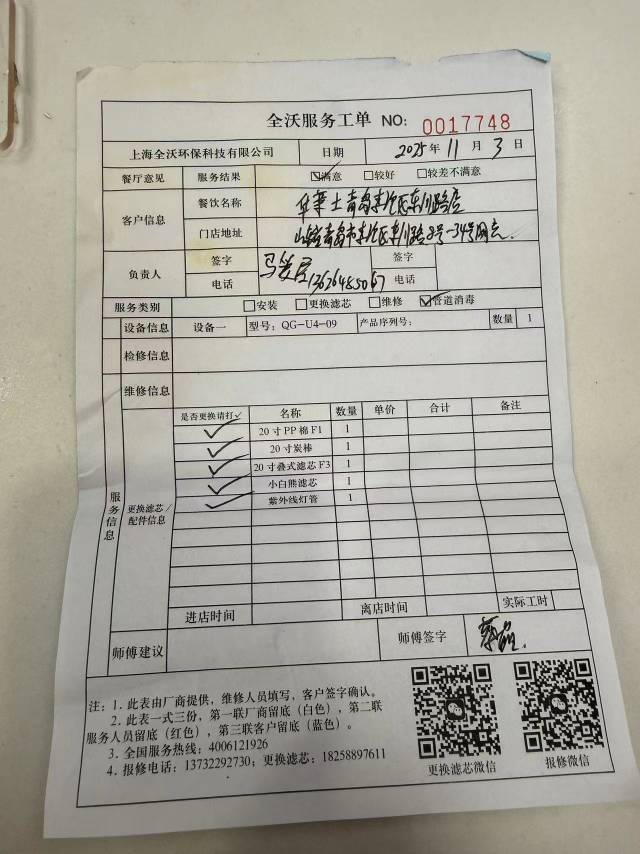 全沃服务工单 NO: 0017748
上海全沃环保科技有限公司 日期 2025年 11月 3日
餐厅意见 服务结果 ☑满意 □较好 □较差不满意
客户信息 餐饮名称 华莱士青岛李沧区东川路店
门店地址 山东青岛市李沧区东川路 号-34号网点
负责人 签字 签字
电话 13626485067 电话
服务类别 □安装 □更换滤芯 □维修 ☑管道消毒
设备信息 设备一 型号: QG-U4-09 产品序列号: 数量 1
检修信息
维修信息
服务信息 更换滤芯/配件信息
是否更换请打✓ 名称 数量 单价 合计 备注
✓ 20寸PP棉F1 1
✓ 20寸炭棒 1
✓ 20寸叠式滤芯F3 1
✓ 小白熊滤芯 1
✓ 紫外线灯管 1
进店时间 离店时间 实际工时
师傅建议 师傅签字
注: 1. 此表由厂商提供, 维修人员填写, 客户签字确认。
2. 此表一式三份, 第一联厂商留底(白色), 第二联
服务人员留底(红色), 第三联客户留底(蓝色)。
3. 全国服务热线: 4006121926
4. 报修电话: 13732292730; 更换滤芯: 18258897611
更换滤芯微信 报修微信